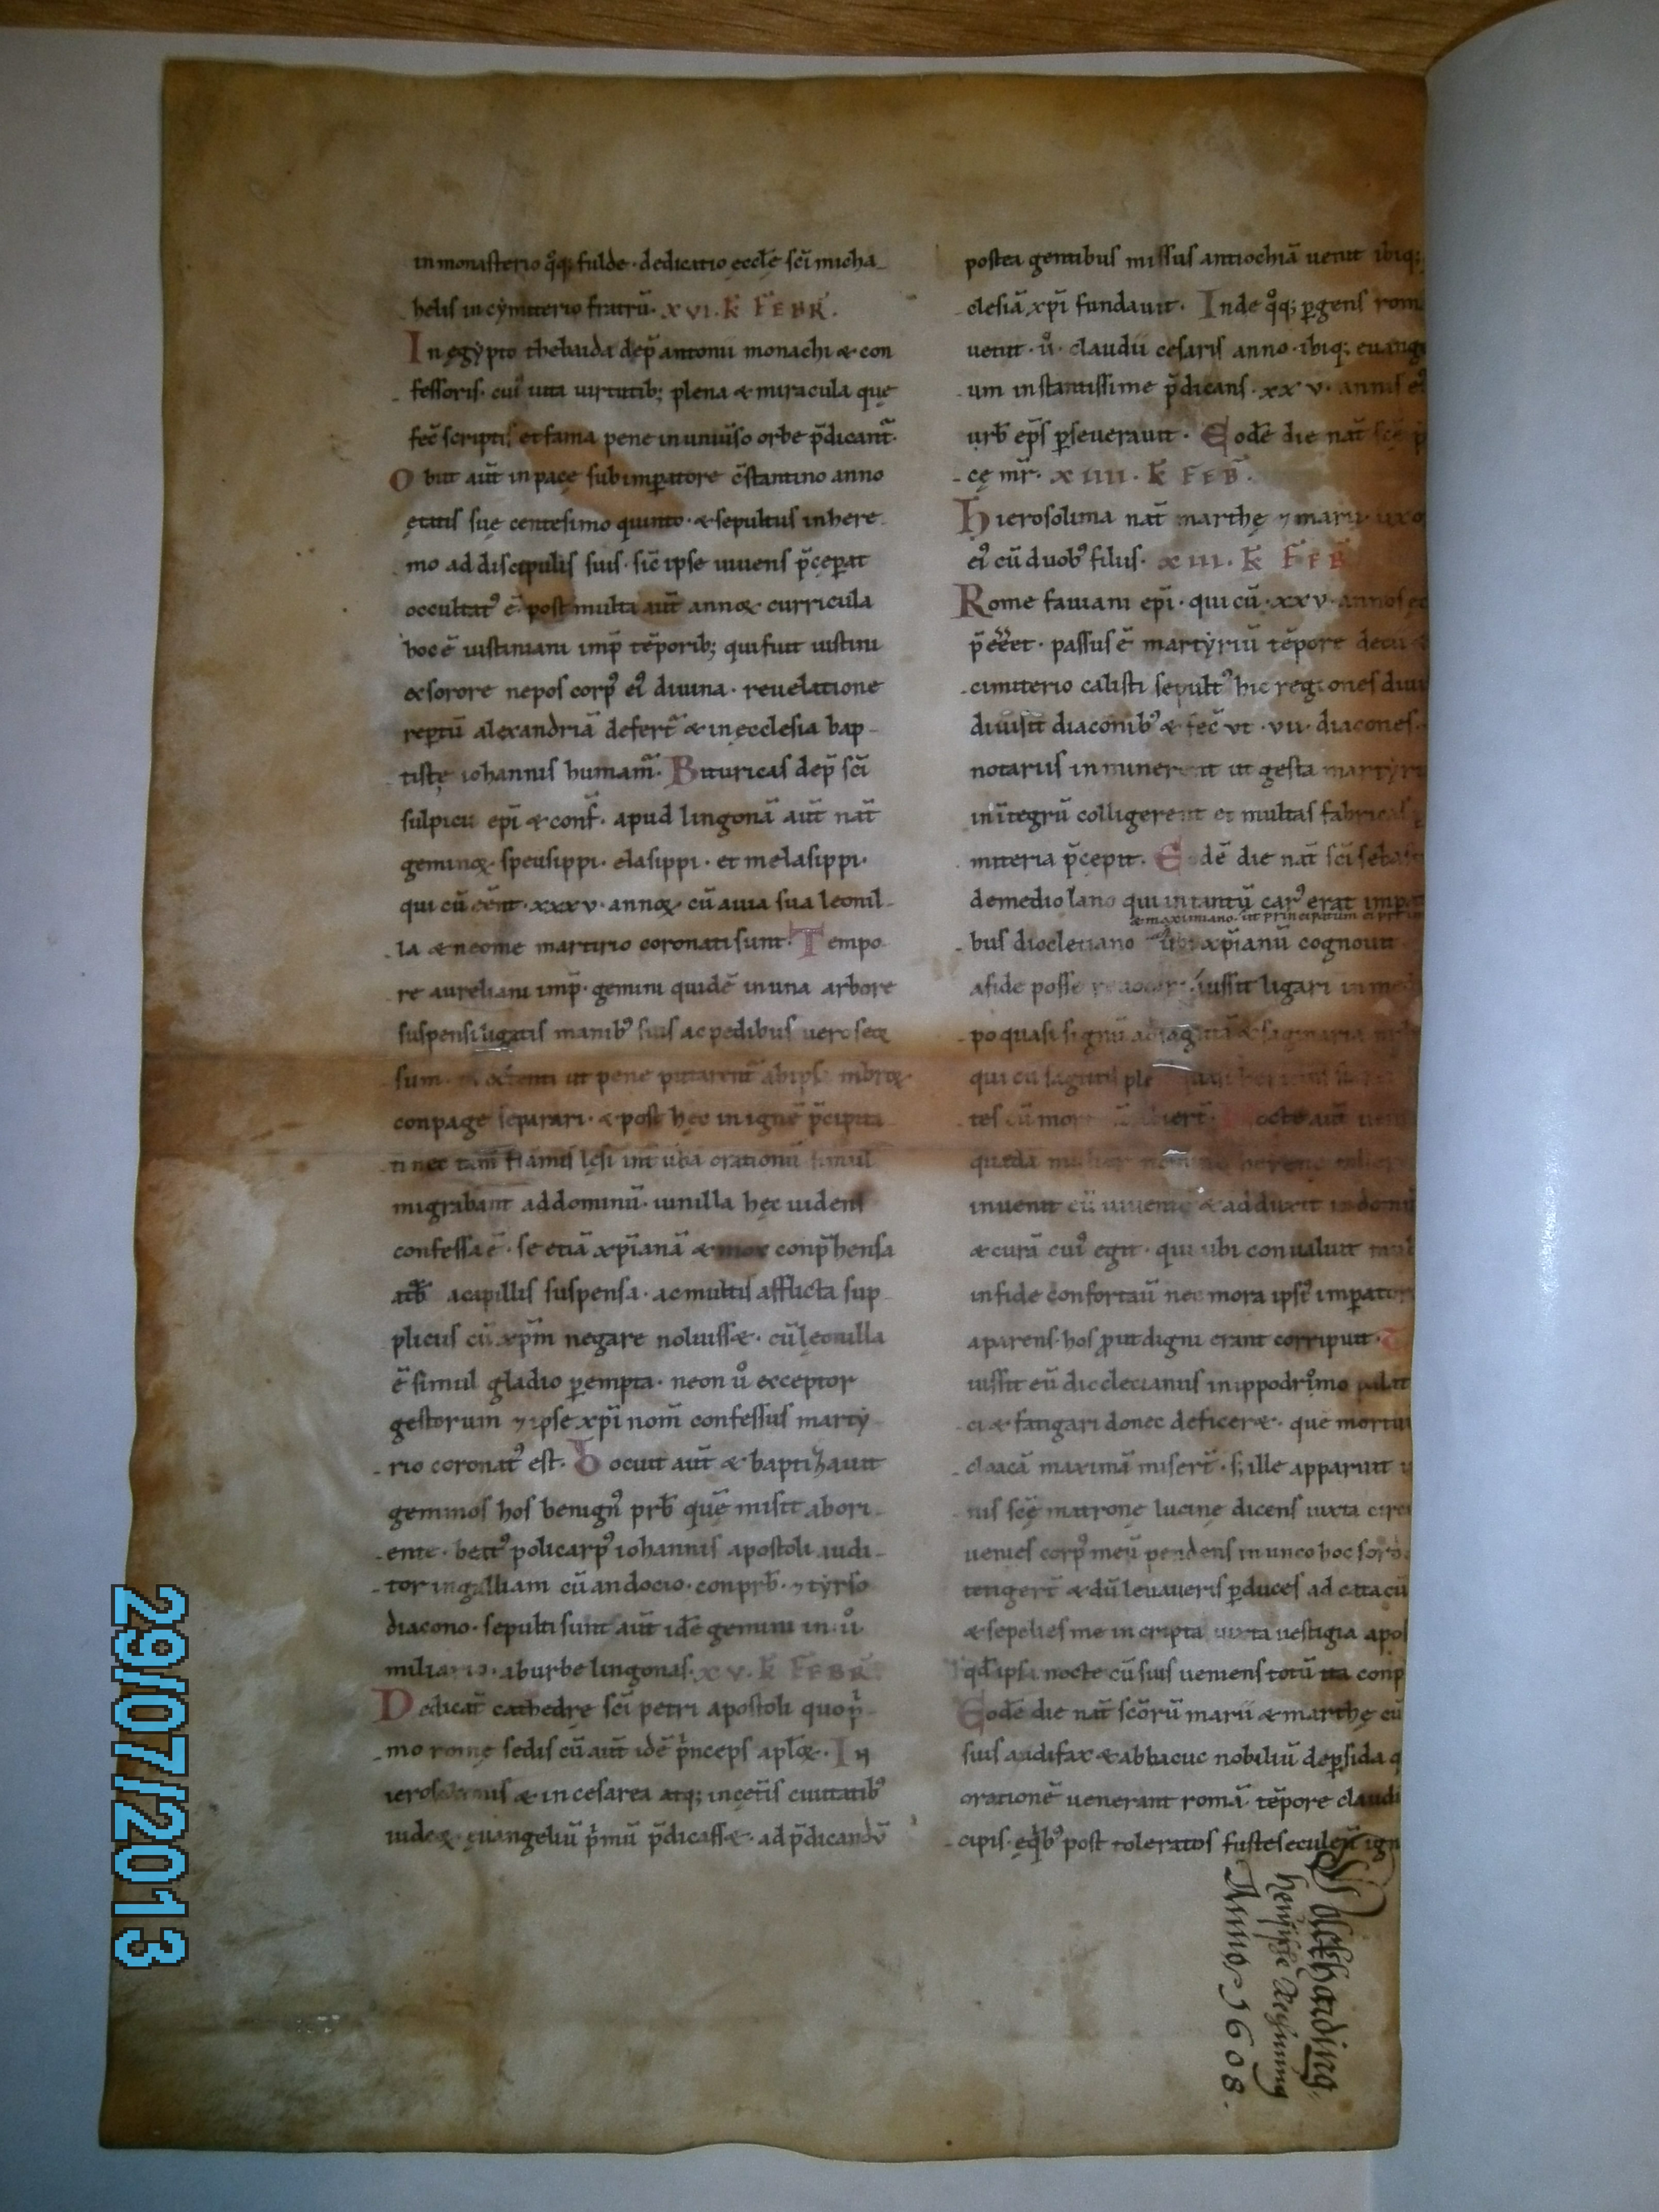 in monasterio q̊q; fulde · dedicatio eccłe sc̄i micha
helis in cymiterio fratrū · XVI · k̄ FEBR̄ ·
In ęgypto thebaida dep̄ antonii monachi & con
fessoris · cui᾽ uita uirtutib; plena & miracula que
fec̄ scriptis et fama pene in uniu̅so orbe p̄dicant᷑ ·
Obiit aūt in pace sub imp̱atore c̄stantino anno
ętatis suę centesimo quinto · & sepultus in here
mo ad discipulis suis · sic̄ ipse uiuens p̄cep̱at
occultat᾽ ē · post multa aūt annoꝝ curricula
hoc ē iustiniani imp̄ tēporib; qui fuit iustini
ex sorore nepos corp᾽ ei᾽ diuina · reuelatione
rep̱tū alexandriā defert᷑ & in ecclesia bap
tistę iohannis humat᷑ · Bituricas dep̄ sc̄i
sulpicii ep̄i & conf̄ · apud lingonā aūt nat̄
geminoꝝ · speusippi · elasippi · et melasippi ·
qui cū eēnt · xxxv · annoꝝ · cū auia sua leonil
la & neone martirio coronati sunt · Tempo
re aureliani imp̄ · gemini quidē in una arbore
suspensi ligatis manib᾽ suis ac pedibus
sum ut pene putarent᷑ ab ips mbroꝝ
conpage separari · & post hec in ignē p̄cipita
ti nec tam̄ flāmis lesi int̄ uba orationū simul
migrabant ad dominū · iunilla hęc uidens
confessa ē · se etiā xp̄ianā & mox conp̄hensa
acapillis suspensa · ac multis afflicta sup
pliciis cū xp̄m negare noluiss& · cū leonilla
ē simul gladio p̱empta · neon u̇̊ exceptor
gestorum ⁊ ipse xp̄i nom̄ confessus marty
rio coronat᾽ est · Docuit aūt & baptizauit
geminos hos benign᾽ prb̄ quē misit ab ori
ente · beat᾽ policarp᾽ iohannis apostoli audi
tor in galliam cū andocio · conprb̄ · ⁊ tyrso
diacono · sepulti sunt aūt idē gemini in · ii̊ ·
miliario · ab urbe lingonas · XV · k̄ FEBR̄
Dedicat̄ cathedre sc̄i petri apostoli quo pⁱ
mo rome sedis cū aūt idē pⁱnceps aplōꝝ · In
ierosolimis & in cesarea atq; in cet̄is ciuitatib᾽
iudeꝝ · euangeliū pⁱmū p̄dicass& · ad p̄dicandū
postea gentibus missus antiochiā uenit ibiq;
clesiā xp̄i fundauit · Inde q̊q; p̱gens rom
uenit · ii̊ · claudii cesaris anno · ibiq; euang
um instantissime p̄dicans · xxv · annis ei᾽
urb̄ ep̄s p̱seuerauit · Eodē die nat̄ scę p
cę mr̄ · XIIII · k̄ FEB̄ ·
Hierosolima nat̄ marthę ⁊ marii · uxo
ei᾽ cū duob᾽ filiis · XIII · k̄ FEB̄
Rome fauiani ep̄i · qui cū · xxv · annos ec
p̄eēt · passus ē martyriū tēpore decii
cimiterio calisti sepult᾽ hic regiones diui
diuisit diaconib᾽ & fec̄ vi · vii · diacones ·
notariis in munere ut gesta martyr
in īntegrū colligerent et multas fabricas
miteria p̄cepit · Eodē die nat̄ sc̄i sebas
de mediolano qui in tantū car᾽ erat imp̱at
& maximiano · ut principatum ei pri
bus diocletiano ubi xp̄ianū cognouit
a fide posse iussit ligari in med
po quasi signū ad sagittā & sagittaria
qui cū sagittis ple
tes cū mor Nocte aūt
quedā mulier nomine herene
inuenit eū uiuentē & adduxit in domū
& curā cui᾽ egit · qui ubi conualuit mult
in fide confortau̅ nec mora ipsi᾽ imp̱ator
aparens · hos p̱ut digni erant corripuit ·
iussit eū dioclecianus in ippodromo palat
ci & fatigari donec deficer& · quē mortu
cloacā maximā misert̄ · s; ille apparuit
nis scę matrone lucine dicens iuxta circ
uenies corp᾽ meū pendens in unco hoc sord
tengert̄ & dū leuaueris p̱duces ad catacū
& sepelies me in cripta iuxta uestigia apol
qd̄ ipsa nocte cū suis ueniens totū ita conp
Eodē die nat̄ sc̄orū marii & marthę cū
suis audifax & abbacuc nobiliū de p̱sida q
orationē uenerant romā · tēpore claudi
cipis · e qⁱb᾽ post toleratos fustes eculeū ign
Volckharding
Anno 1608.
29/07/2013